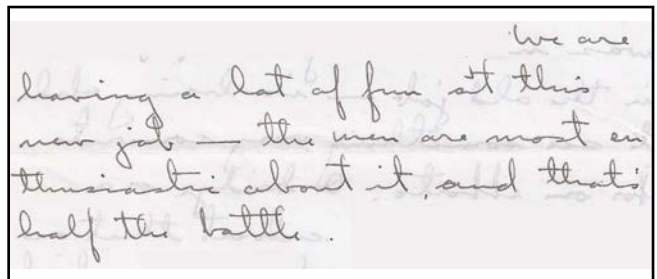 We are
having a lot of fun at this
new job — the men are most en
thusiastic about it, and that's
half the battle.